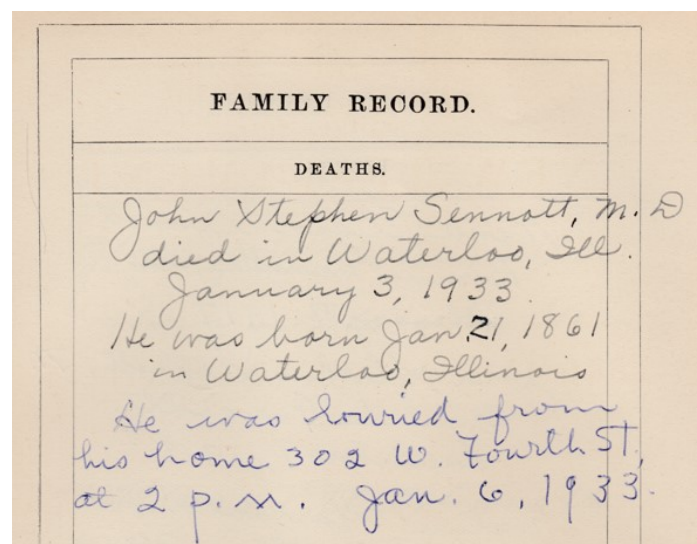 FAMILY RECORD.
DEATHS.
John Stephen Sennott, M.D
died in Waterloo, Ill.
January 3, 1933
He was born Jan. 21, 1861
in Waterloo, Illinois
He was burried from
his home 302 W. Fourth St,
at 2 p.m. Jan. 6, 1933.